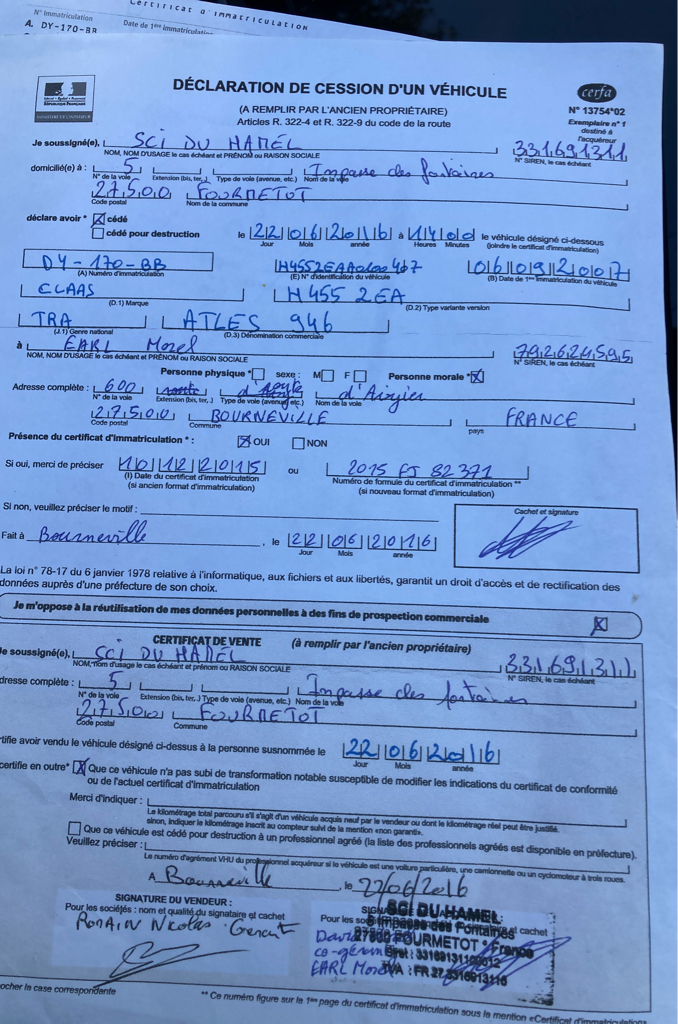 Certificat d'immatriculation
N° Immatriculation
A. DY-170-BB
Date de 1ère Immatriculation
Liberté • Égalité • Fraternité
RÉPUBLIQUE FRANÇAISE
MINISTÈRE DE L'INTÉRIEUR
DÉCLARATION DE CESSION D'UN VÉHICULE
(A REMPLIR PAR L'ANCIEN PROPRIÉTAIRE)
Articles R. 322-4 et R. 322-9 du code de la route
cerfa
N° 13754*02
Exemplaire n° 1
destiné à
l'acquéreur
Je soussigné(e), SCI DU HAMEL 331691311
NOM, NOM D'USAGE le cas échéant et PRÉNOM ou RAISON SOCIALE N° SIREN, le cas échéant
domicilié(e) à : 5 Impasse des fontaines
N° de la voie Extension (bis, ter, ) Type de voie (avenue, etc.) Nom de la voie
27500 FOURMETOT
Code postal Nom de la commune
déclare avoir * ☒ cédé
☐ cédé pour destruction le 22 06 2016 à 14 00 le véhicule désigné ci-dessous
Jour Mois année Heures Minutes (joindre le certificat d'immatriculation)
DY-170-BB 06 09 2007
(A) Numéro d'immatriculation (E) N° d'identification du véhicule (B) Date de 1ère immatriculation du véhicule
CLAAS H455 2EA
(D.1) Marque (D.2) Type variante version
TRA ATLES 946
(J.1) Genre national (D.3) Dénomination commerciale
à EARL Morel 792624595
NOM, NOM D'USAGE le cas échéant et PRÉNOM ou RAISON SOCIALE N° SIREN, le cas échéant
Personne physique* ☐ sexe : M ☐ F ☐ Personne morale* ☒
Adresse complète : 600 d'Aizier
N° de la voie Extension (bis, ter, ) Type de voie (avenue, etc.) Nom de la voie
27500 BOURNEVILLE FRANCE
Code postal Commune pays
Présence du certificat d'immatriculation * : ☒ OUI ☐ NON
Si oui, merci de préciser 10 12 2015 ou 2015 FJ 82371
(I) Date du certificat d'immatriculation Numéro de formule du certificat d'immatriculation **
(si ancien format d'immatriculation) (si nouveau format d'immatriculation)
Si non, veuillez préciser le motif :
Cachet et signature
Fait à Bourneville , le 22 06 2016
Jour Mois année
La loi n° 78-17 du 6 janvier 1978 relative à l'informatique, aux fichiers et aux libertés, garantit un droit d'accès et de rectification des
données auprès d'une préfecture de son choix.
Je m'oppose à la réutilisation de mes données personnelles à des fins de prospection commerciale ☒
CERTIFICAT DE VENTE (à remplir par l'ancien propriétaire)
Je soussigné(e), SCI DU HAMEL 331691311
NOM, nom d'usage le cas échéant et prénom ou RAISON SOCIALE N° SIREN, le cas échéant
dresse complète : 5 Impasse des fontaines
N° de la voie Extension (bis, ter, ) Type de voie (avenue, etc.) Nom de la voie
27500 FOURMETOT
Code postal Commune
rtifie avoir vendu le véhicule désigné ci-dessus à la personne susnommée le 22 06 2016
Jour Mois année
certifie en outre* ☒ Que ce véhicule n'a pas subi de transformation notable susceptible de modifier les indications du certificat de conformité
ou de l'actuel certificat d'immatriculation
Merci d'indiquer :
Le kilométrage total parcouru s'il s'agit d'un véhicule acquis neuf par le vendeur ou dont le kilométrage réel peut être justifié.
sinon, indiquer le kilométrage inscrit au compteur suivi de la mention «non garanti».
☐ Que ce véhicule est cédé pour destruction à un professionnel agréé (la liste des professionnels agréés est disponible en préfecture).
Veuillez préciser :
Le numéro d'agrément VHU du professionnel acquéreur si le véhicule est une voiture particulière, une camionnette ou un cyclomoteur à trois roues.
A Bourneville , le 22/06/2016
SIGNATURE DU VENDEUR :
Pour les sociétés : nom et qualité du signataire et cachet
ROMAIN Nicolas Gérant
SCI DU HAMEL
Pour les et cachet
5 Impasse des Fontaines
27500 FOURMETOT * France
co-gérant
EARL Morel
ocher la case correspondante
** Ce numéro figure sur la 1ère page du certificat d'immatriculation sous la mention «Certificat d'immatriculation»